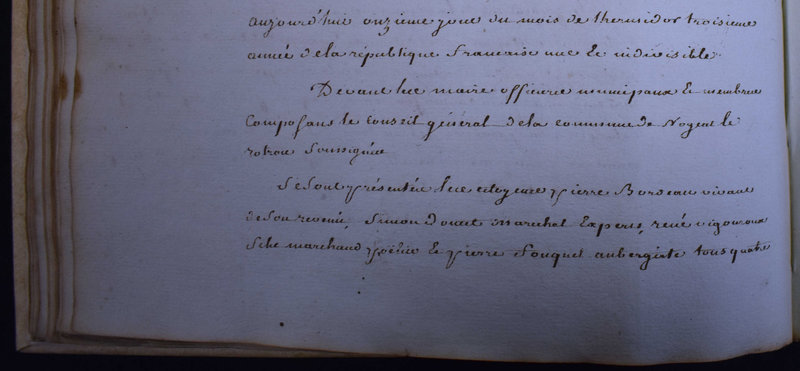 aujourd'hui onzieme jour du mois de thermidor troisieme
année de la république francaise une et indivisible.
Devant les maire officiers municipaux et membres
Composans le Conseil général de la commune de Nogent le
rotrou Soussignés
Se Sont présentés les citoyens pierre Bordeau vivant
de Son revenu, Simon Douet marechal Expers, rené vigouroux
fils marchand poëlier et pierre Souquet aubergiste tous quatre